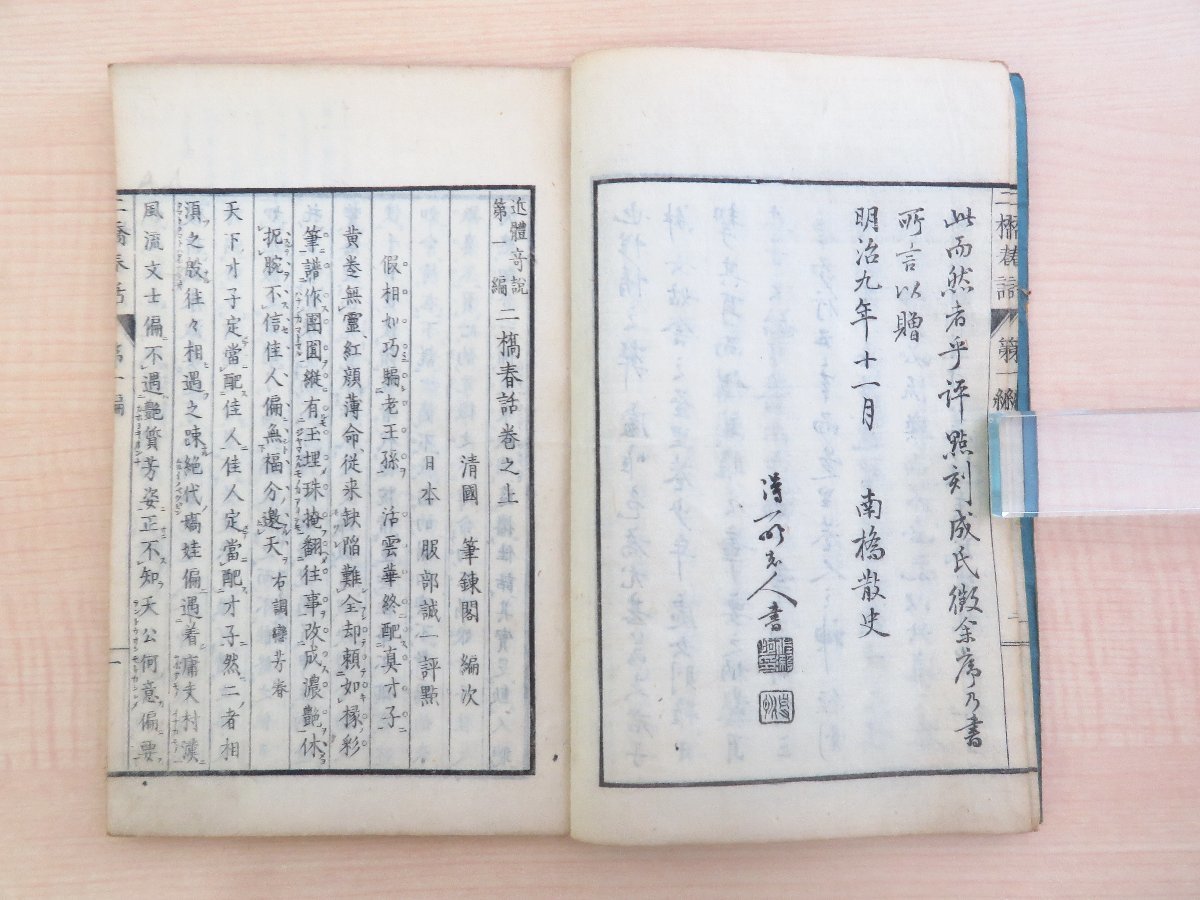 此而然者乎評點刻成氏徴余序乃書
所言以贈
明治九年十一月 南橋散史
人書
近體奇說
第一編
二橋春話卷之上
清國 筆鍊閣 編次
日本 服部誠一 評點
假相如巧騙老王孫 活雲華終配真才子
黄卷無靈、紅顔薄命、從来缺陥難全却頼如椽彩
筆譜作團圓縱有玉埋珠掩翻往事改成濃艶休
扼腕不信佳人偏無福分邀天 右調戀芳春
天下才子定當配佳人佳人定當配才子然二者相
須之殷往々相遇之踈絶代嬌娃偏遇着庸夫村漢
風流文士偏不遇艶質芳姿正不知天公何意偏要
二橋春話 第一編 一
二橋春話 第一編